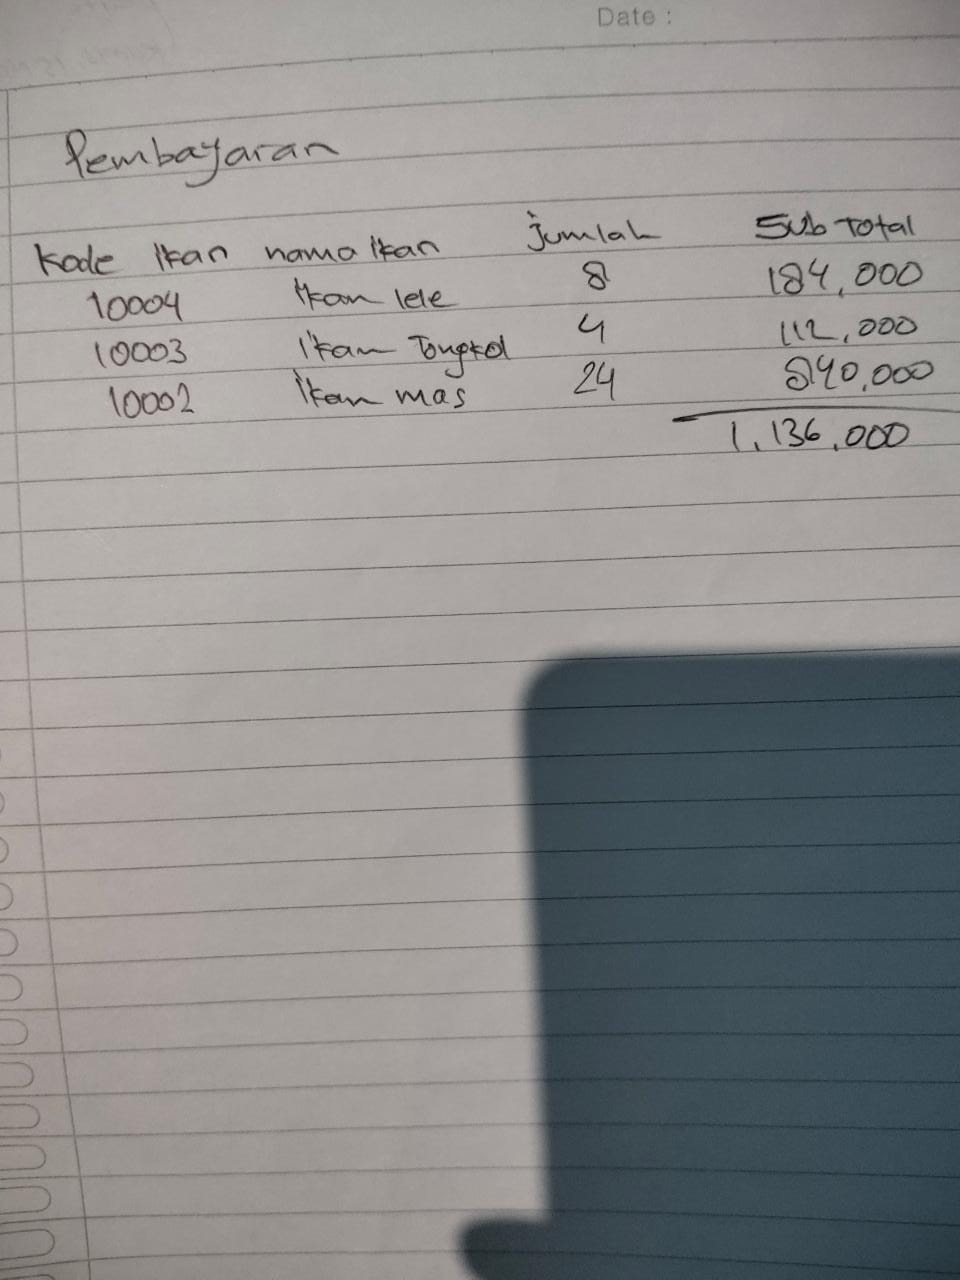 Date :
Pembayaran
Kode Ikan nama Ikan jumlah Sub Total
10004 Ikan lele 8 184,000
10003 Ikan Tongkol 4 112,000
10002 Ikan mas 24 840,000
1.136.000